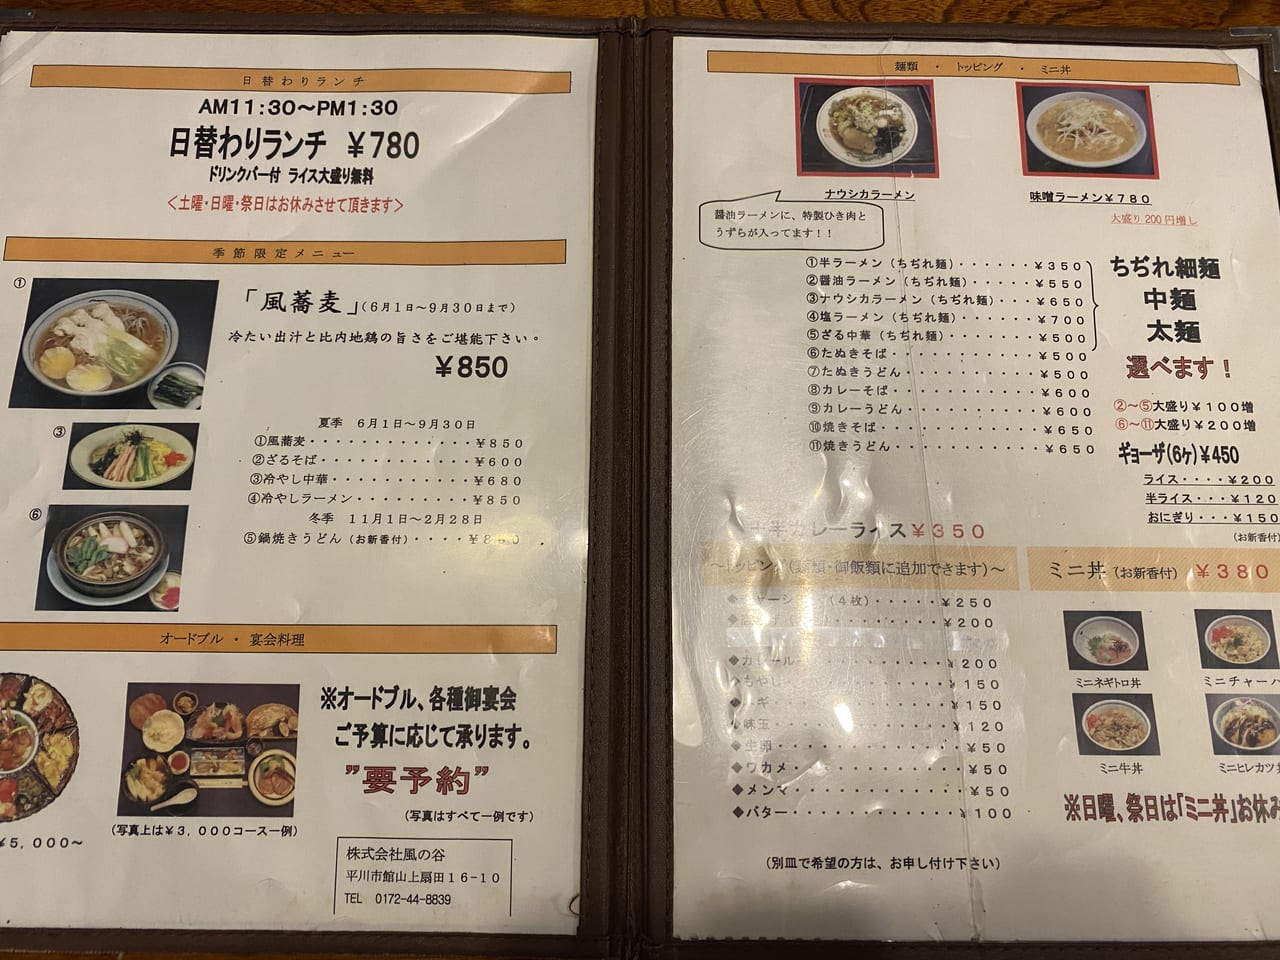 日替わりランチ
AM11:30～PM1:30
日替わりランチ ￥780
ドリンクバー付 ライス大盛り無料
＜土曜・日曜・祭日はお休みさせて頂きます＞
季節限定メニュー
①
「風蕎麦」(6月1日～9月30日まで)
冷たい出汁と比内地鶏の旨さをご堪能下さい。
￥850
③
⑥
夏季 6月1日～9月30日
①風蕎麦・・・・・・・・・・・・¥850
②ざるそば・・・・・・・・・・・¥600
③冷やし中華・・・・・・・・・・¥680
④冷やしラーメン・・・・・・・・¥850
冬季 11月1日～2月28日
⑤鍋焼きうどん(お新香付)・・・・¥850
オードブル ・ 宴会料理
※オードブル、各種御宴会
ご予算に応じて承ります。
”要予約”
(写真はすべて一例です)
¥5,000～
(写真上は¥3,000コース一例)
株式会社風の谷
平川市館山上扇田16-10
TEL 0172-44-8839
麺類 ・ トッピング ・ ミニ丼
ナウシカラーメン
味噌ラーメン¥780
大盛り200円増し
醤油ラーメンに、特製ひき肉と
うずらが入ってます！！
①半ラーメン(ちぢれ麺)・・・・・・¥350
②醤油ラーメン(ちぢれ麺)・・・・・¥550
③ナウシカラーメン(ちぢれ麺)・・・¥650
④塩ラーメン(ちぢれ麺)・・・・・・¥700
⑤ざる中華(ちぢれ麺)・・・・・・・¥500
⑥たぬきそば・・・・・・・・・・・¥500
⑦たぬきうどん・・・・・・・・・・¥500
⑧カレーそば・・・・・・・・・・・¥600
⑨カレーうどん・・・・・・・・・・¥600
⑩焼きそば・・・・・・・・・・・・¥650
⑪焼きうどん・・・・・・・・・・・¥650
ちぢれ細麺
中麺
太麺
選べます！
②～⑤大盛り¥100増
⑥～⑪大盛り¥200増
ギョーザ(6ケ)¥450
ライス・・・・¥200
半ライス・・・¥120
おにぎり・・・¥150
(お新香
半カレーライス¥350
～トッピング(麺類・御飯類に追加できます)～
(4枚)・・・・・¥250
¥200
¥200
◆もやし・・・・・・・・・・¥150
¥150
味玉・・・・・・・・・・・¥120
◆生卵・・・・・・・・・・・¥50
◆ワカメ・・・・・・・・・・¥50
◆メンマ・・・・・・・・・・¥50
◆バター・・・・・・・・・・¥100
(別皿で希望の方は、お申し付け下さい)
ミニ丼(お新香付) ¥380
ミニネギトロ丼
ミニチャーハ
ミニ牛丼
ミニヒレカツ丼
※日曜、祭日は「ミニ丼」お休み